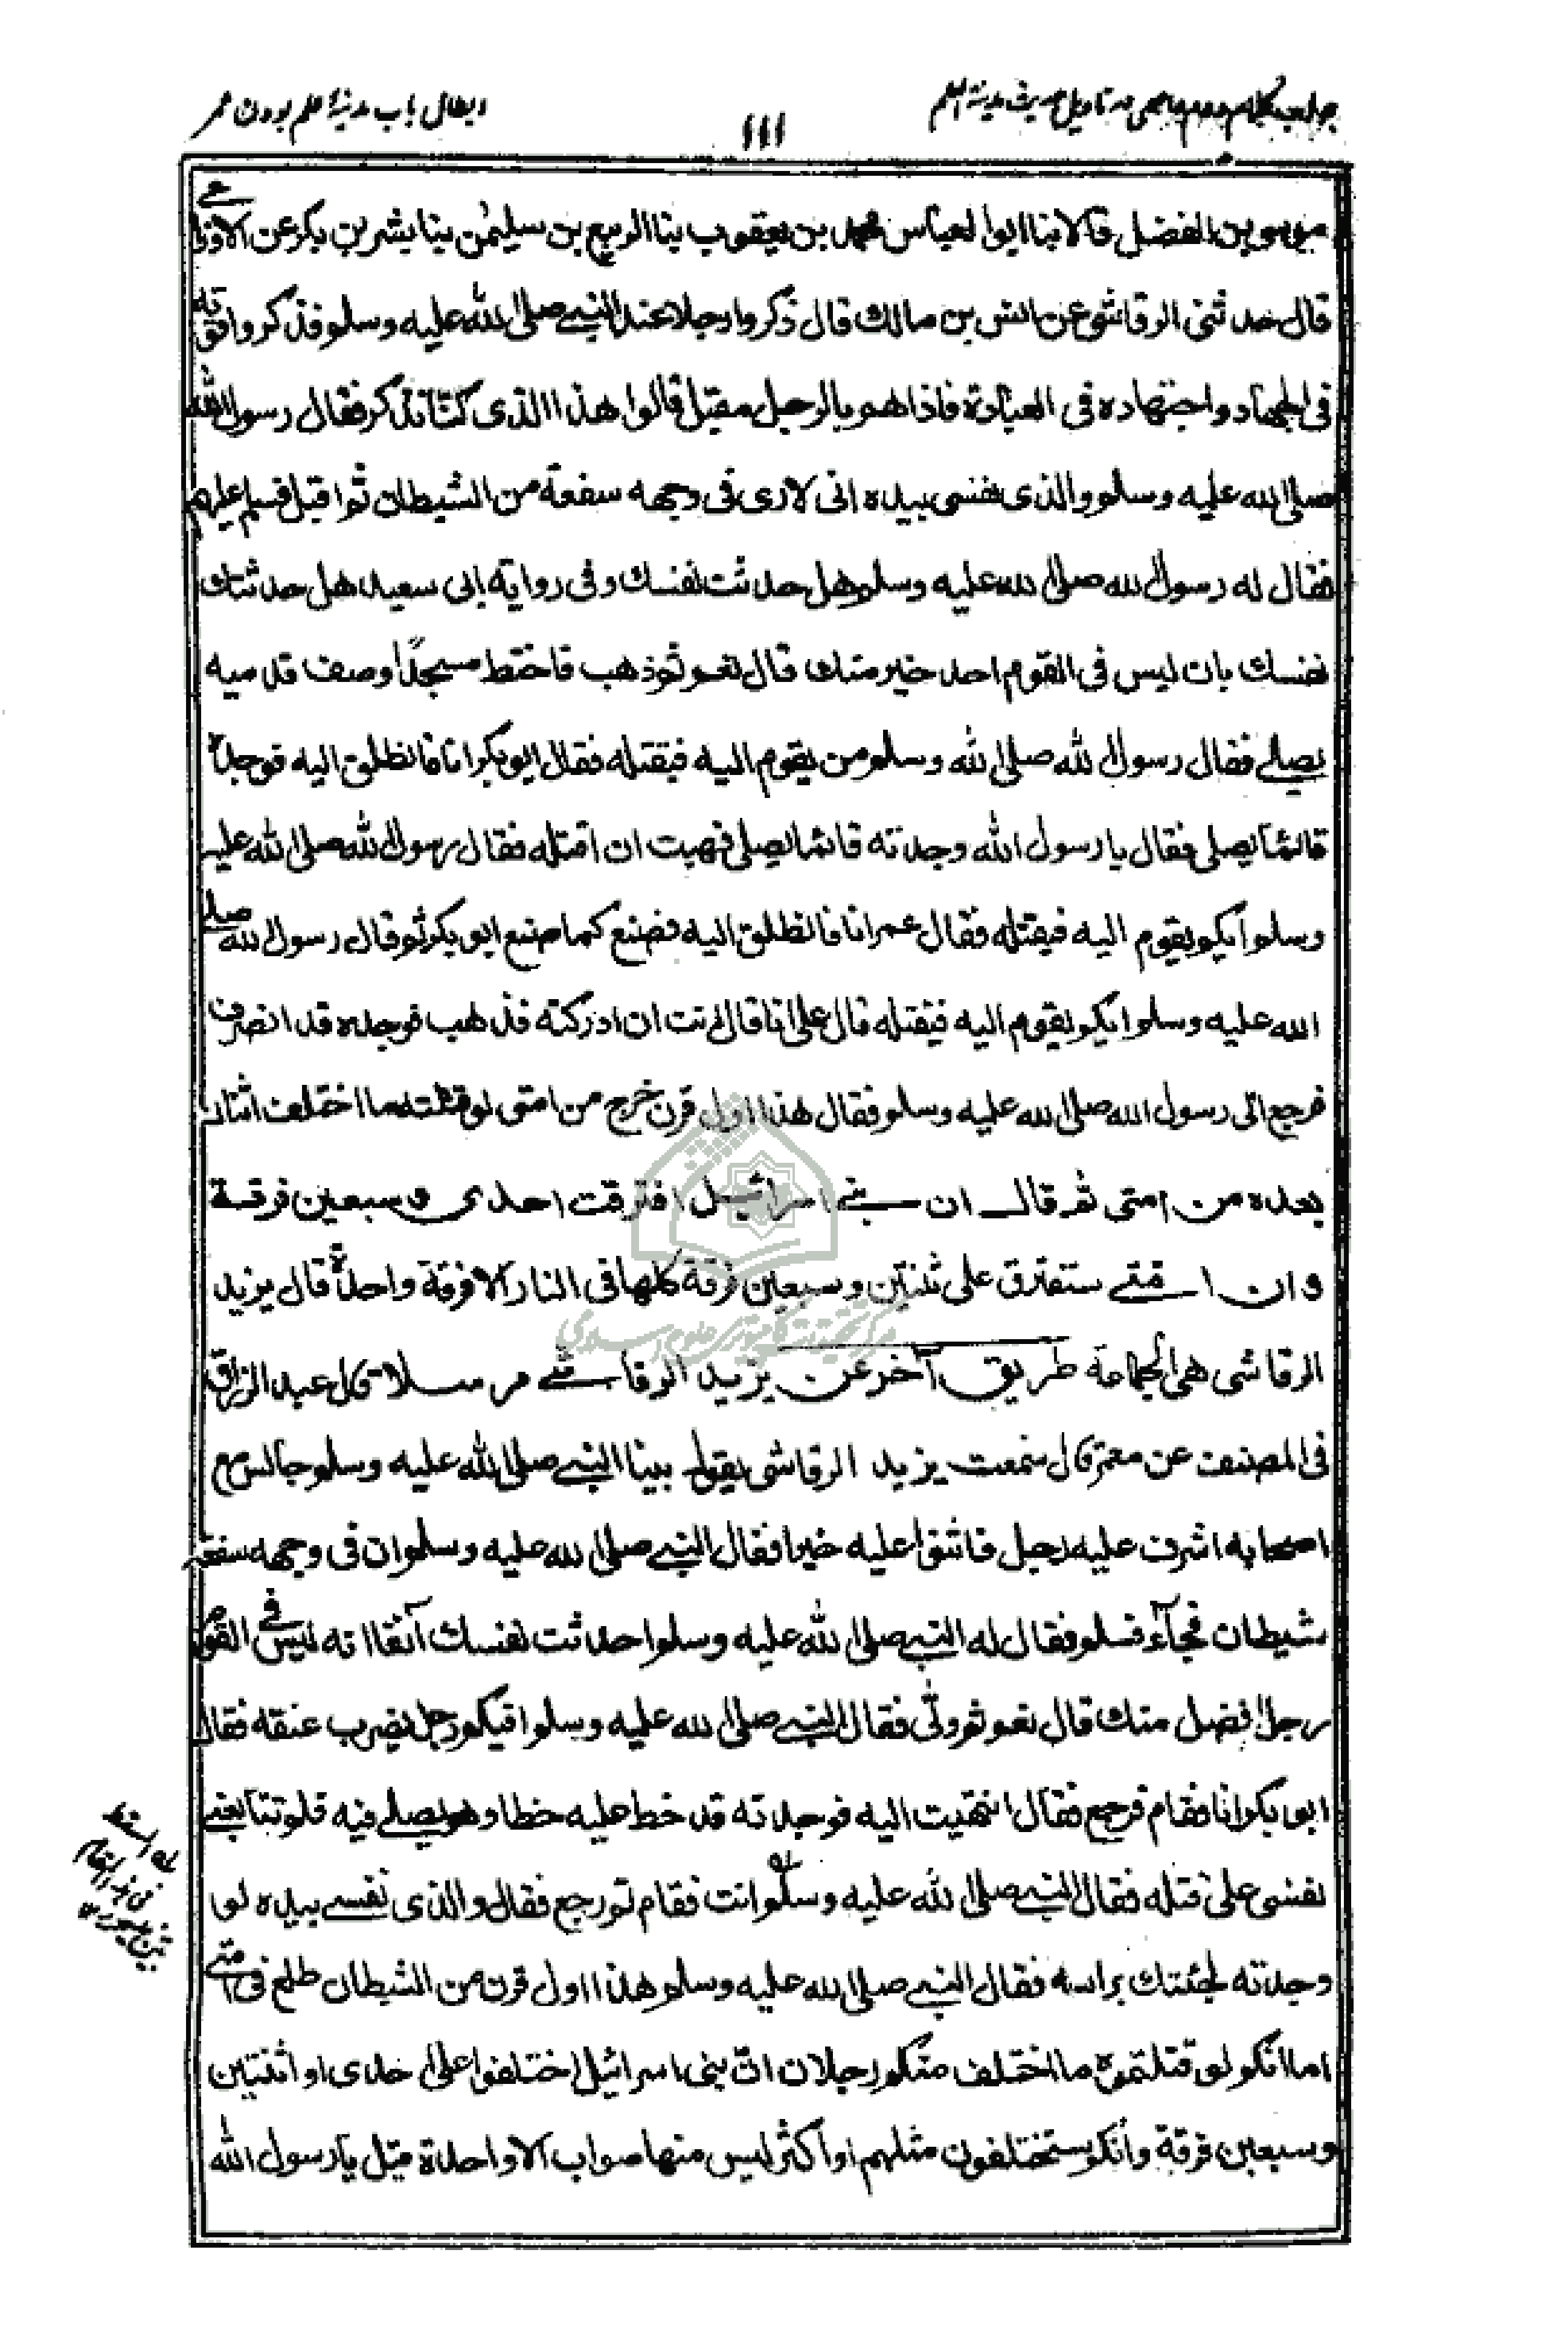 جواب کلام عاصمی در تاویل حدیث مدینة العلم
١١١
ابطال باب مدینهٔ علم بودن عمر
موسی بن الفضل قالا بنا ابوالعباس محمد بن یعقوب بنا الربیع بن سلیمٰن بنا بشر بن بکر عن الاوزاعی
قال حدثنی الرقاشی عن انس بن مالك قال ذکروا رجلا عند النبی صلی الله علیه وسلم فذکروا قوته
فی الجهاد واجتهاده فی العبادة فاذا هم بالرجل مقبل قالوا هذا الذی کنّا نذکر فقال رسول الله
صلی الله علیه وسلم والذی نفسی بیده انی لاری فی وجهه سفعة من الشیطان ثم اقبل فسلم علیهم
فقال له رسول الله صلی الله علیه وسلم هل حدثت نفسك وفی روایة ابی سعید هل حدثتك
نفسك بان لیس فی القوم احد خیر منك قال نعم ثم ذهب فاختط مسجدًا وصف قدمیه
یصلی فقال رسول الله صلی الله وسلم من یقوم الیه فیقتله فقال ابو بکر انا فانطلق الیه فوجده
قائما یصلی فقال یا رسول الله وجدته قائما یصلی فهبت ان اقتله فقال رسول الله صلی الله علیه
وسلم ایکم یقوم الیه فیقتله فقال عمر انا فانطلق الیه فصنع کما صنع ابو بکر ثم قال رسول الله صلی
الله علیه وسلم ایکم یقوم الیه فیقتله قال علی انا قال انت ان ادرکته فذهب فوجده قد انصرف
فرجع الی رسول الله صلی الله علیه وسلم فقال هذا اول قرن خرج من امتی لو قتلته ما اختلف اثنان
بعده من امتی ثم قال ان بنی اسرائیل افترقت احدی و سبعین فرقة
وان امتی ستفترق علی ثنتین وسبعین فرقة کلها فی النار الا فرقة واحدة قال یزید
الرقاشی هی الجماعة طریق آخر عن یزید الرقاشی مرسلا قال عبد الرزاق
فی المصنف عن معمر قال سمعت یزید الرقاشی یقول بینا النبی صلی الله علیه وسلم جالس مع
اصحابه اشرف علیه رجل فاثنوا علیه خیرا فقال النبی صلی الله علیه وسلم ان فی وجهه سفعة
شیطان فجآء فسلم فقال له النبی صلی الله علیه وسلم احدثت نفسك آنفا انه لیس فی القوم
رجل افضل منك قال نعم ثم ولّی فقال النبی صلی الله علیه وسلم افیکم رجل یضرب عنقه فقال
ابو بکر انا فقام فرجع فقال انتهیت الیه فوجدته قد خط علیه خطا وهو یصلی فیه فلم تتابعنی
نفسی علی قتله فقال النبی صلی الله علیه وسلم انت فقام ثم رجع فقال والذی نفسی بیده لو
وجدته لجئتك براسه فقال النبی صلی الله علیه وسلم هذا اول قرن من الشیطان طلع فی امتی
اما انکم لو قتلتموه ما اختلف منکم رجلان انّ بنی اسرائیل اختلفوا علی احدی او اثنتین
وسبعین فرقة وانکم ستختلفون مثلهم او اکثر لیس منها صواب الا واحدة قیل یا رسول الله
مرکز تحقیقات کامپیوتری علوم اسلامی